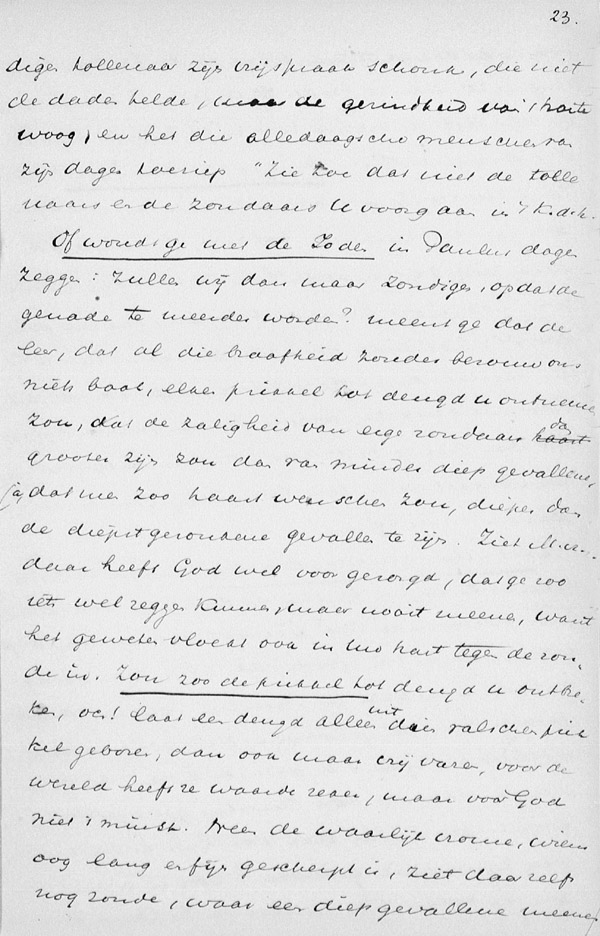 23.
diger tollenaar zijn vrijspraak schonk, die niet
de daden telde, maar de gezindheid van 't harte
woog, en het die alledaagsche menschen van
zijn dagen toeriep "Zie toe dat niet de tolle
naars en de zondaars U voorgaan in 't K.d.h.
Of woudt ge met de Joden in Paulus dagen
zeggen: zullen wij dan maar zondigen, opdat de
genade te meerder worde? meent ge dat de
leer, dat al die braafheid zonder berouw ons
niets baat, elken prikkel tot deugd u ontnemen
zou, dat de zaligheid van enge zondaars haast dan
grooter zijn zou dan van minder diep gevallenen,
ja, dat men zoo haast wenschen zou, dieper dan
de diepst gezonkene gevallen te zijn. Ziet M.H.
daar heeft God wel voor gezorgd, dat ge zoo
iets wel zeggen kunnen, maar nooit meenen, want
het geweten vloekt ook in uw hart tegen de zon-
de in. Zou zoo de prikkel tot deugd u ontbre-
ken, och! laat een deugd alleen uit dien valschen prik
kel geboren, dan ook maar vrij varen, voor de
wereld heeft ze waarde zeker, maar voor God
niet 't minst. Neen de waarlijk vrome, wiens
oog lang en fijn gescherpt is, ziet daar zelfs
nog zonde, waar een diepgevallene meenen